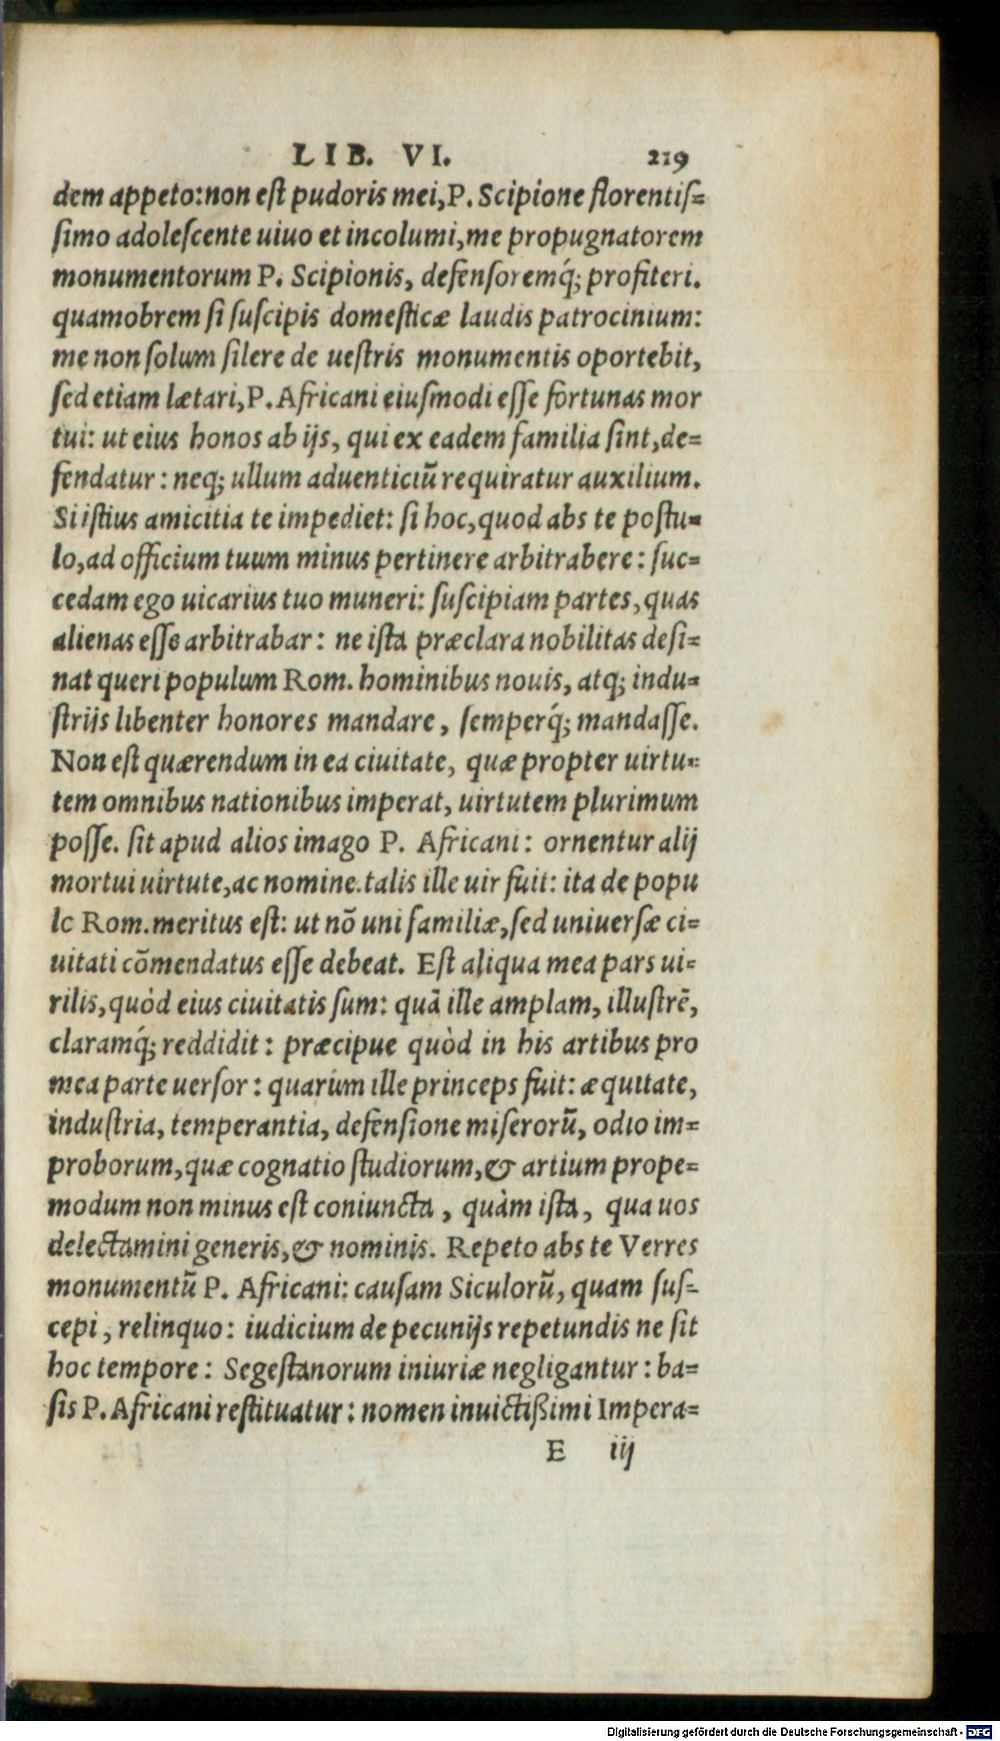 LIB. VI. 219
dem appeto: non est pudoris mei, P. Scipione florentis=
simo adolescente uiuo et incolumi, me propugnatorem
monumentorum P. Scipionis, defensoremq́; profiteri.
quamobrem si suscipis domesticæ laudis patrocinium:
me non solum silere de uestris monumentis oportebit,
sed etiam lætari, P. Africani eiusmodi esse fortunas mor
tui: ut eius honos ab ijs, qui ex eadem familia sint, de=
fendatur: neq; ullum aduenticiũ requiratur auxilium.
Si istius amicitia te impediet: si hoc, quod abs te postu=
lo, ad officium tuum minus pertinere arbitrabere: suc=
cedam ego uicarius tuo muneri: suscipiam partes, quas
alienas esse arbitrabar: ne ista præclara nobilitas desi=
nat queri populum Rom. hominibus nouis, atq; indu=
strijs libenter honores mandare, semperq́; mandasse.
Non est quærendum in ea ciuitate, quæ propter uirtu=
tem omnibus nationibus imperat, uirtutem plurimum
posse. sit apud alios imago P. Africani: ornentur alij
mortui uirtute, ac nomine. talis ille uir fuit: ita de popu
lo Rom. meritus est: ut nõ uni familiæ, sed uniuersæ ci=
uitati cõmendatus esse debeat. Est aliqua mea pars ui=
rilis, quòd eius ciuitatis sum: quã ille amplam, illustrẽ,
claramq́; reddidit: præcipue quòd in his artibus pro
mea parte uersor: quarum ille princeps fuit: æquitate,
industria, temperantia, defensione miserorũ, odio im=
proborum, quæ cognatio studiorum, & artium prope=
modum non minus est coniuncta, quàm ista, qua uos
delectamini generis, & nominis. Repeto abs te Verres
monumentũ P. Africani: causam Siculorũ, quam sus=
cepi, relinquo: iudicium de pecunijs repetundis ne sit
hoc tempore: Segestanorum iniuriæ negligantur: ba=
sis P. Africani restituatur: nomen inuictißimi Impera=
E iij
Digitalisierung gefördert durch die Deutsche Forschungsgemeinschaft - DFG